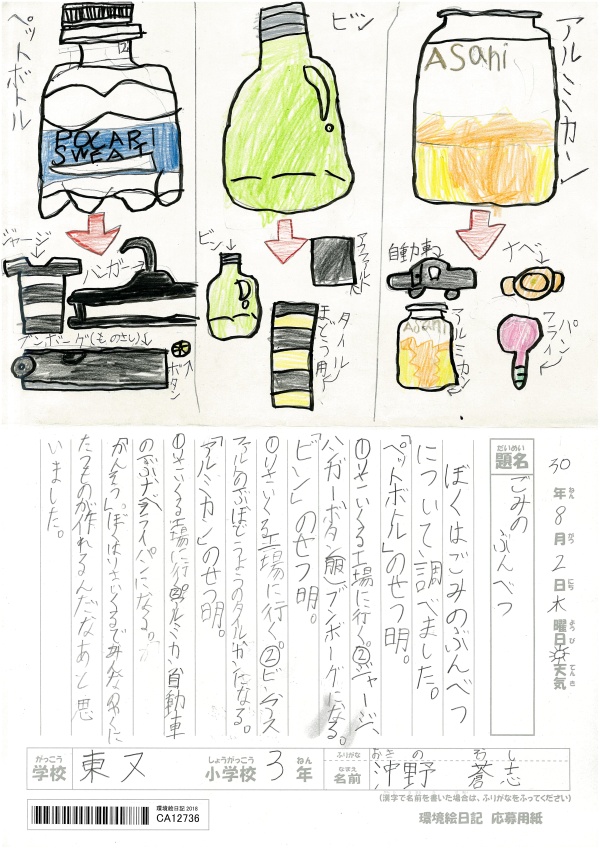 アルミカン
ASahi
ビン
ペットボトル
POCARI
SWEAT
自動車
ナベ
アルミカン
Asahi
フライパン
ビン
アスファルト
タイル
ほどう用
ジャージ
ハンガー
ブンボーグ(ものさし)
ボタン
30年8月2日木曜日 天気
ねん がつ にち よう び てんき
だいめい
題名
ごみの ぶんべつ
ぼくはごみのぶんべつ
について調べました。
「ペットボトル」のせつ明。
①りさいくる工場に行く。②ジャージ、
ハンガーボタン(服)ブンボーグになる。
「ビン」のせつ明。
①りさいくる工場に行く。②ビンアス
「アルミカン」のせつ明。
のぶナベフライパンになる。
「かんそう」ぼくはりさいくるで
たものが作れるんだなあと思
いました。
がっこう
学校
東又
しょうがっこう
小学校
3
ねん
年
ふりがな
なまえ
名前
おきの そし
沖野 蒼志
(漢字で名前を書いた場合は、ふりがなをふってください)
環境絵日記2018
CA12736
環境絵日記 応募用紙